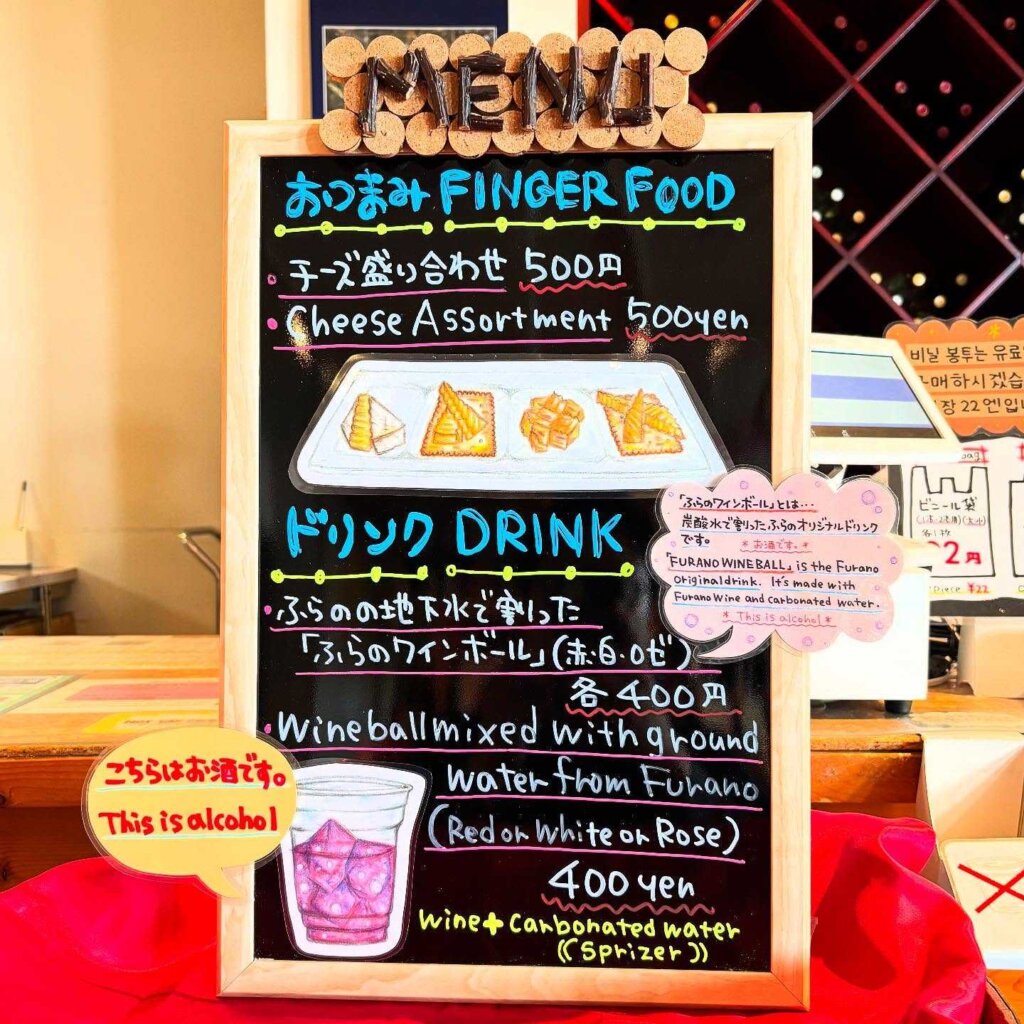 MENU
おつまみ FINGER FOOD
・チーズ盛り合わせ 500円
・Cheese Assortment 500yen
ドリンク DRINK
・ふらのの地下水で割った
「ふらのワインボール」(赤・白・ロゼ)
各400円
・Wineball mixed with ground
water from Furano
(Red or White or Rose)
400yen
Wine+Carbonated water
((Sprizer))
「ふらのワインボール」とは…
炭酸水で割ったふらのオリジナルドリンク
です。 *お酒です。*
「FURANO WINEBALL」 is the Furano
original drink. It's made with
Furano Wine and carbonated water.
* This is alcohol *
こちらはお酒です。
This is alcohol
비닐 봉투는 유료
구매하시겠습
장 22엔입니
bag
ビニール袋
各1枚
22円
piece ¥22